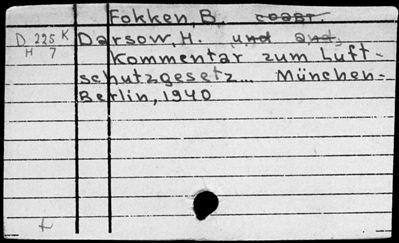 Fokken, B. coaut.
D 225 K Darsow, H. und and.
H 7 Kommentar zum Luft-
schutzgesetz... München-
Berlin, 1940